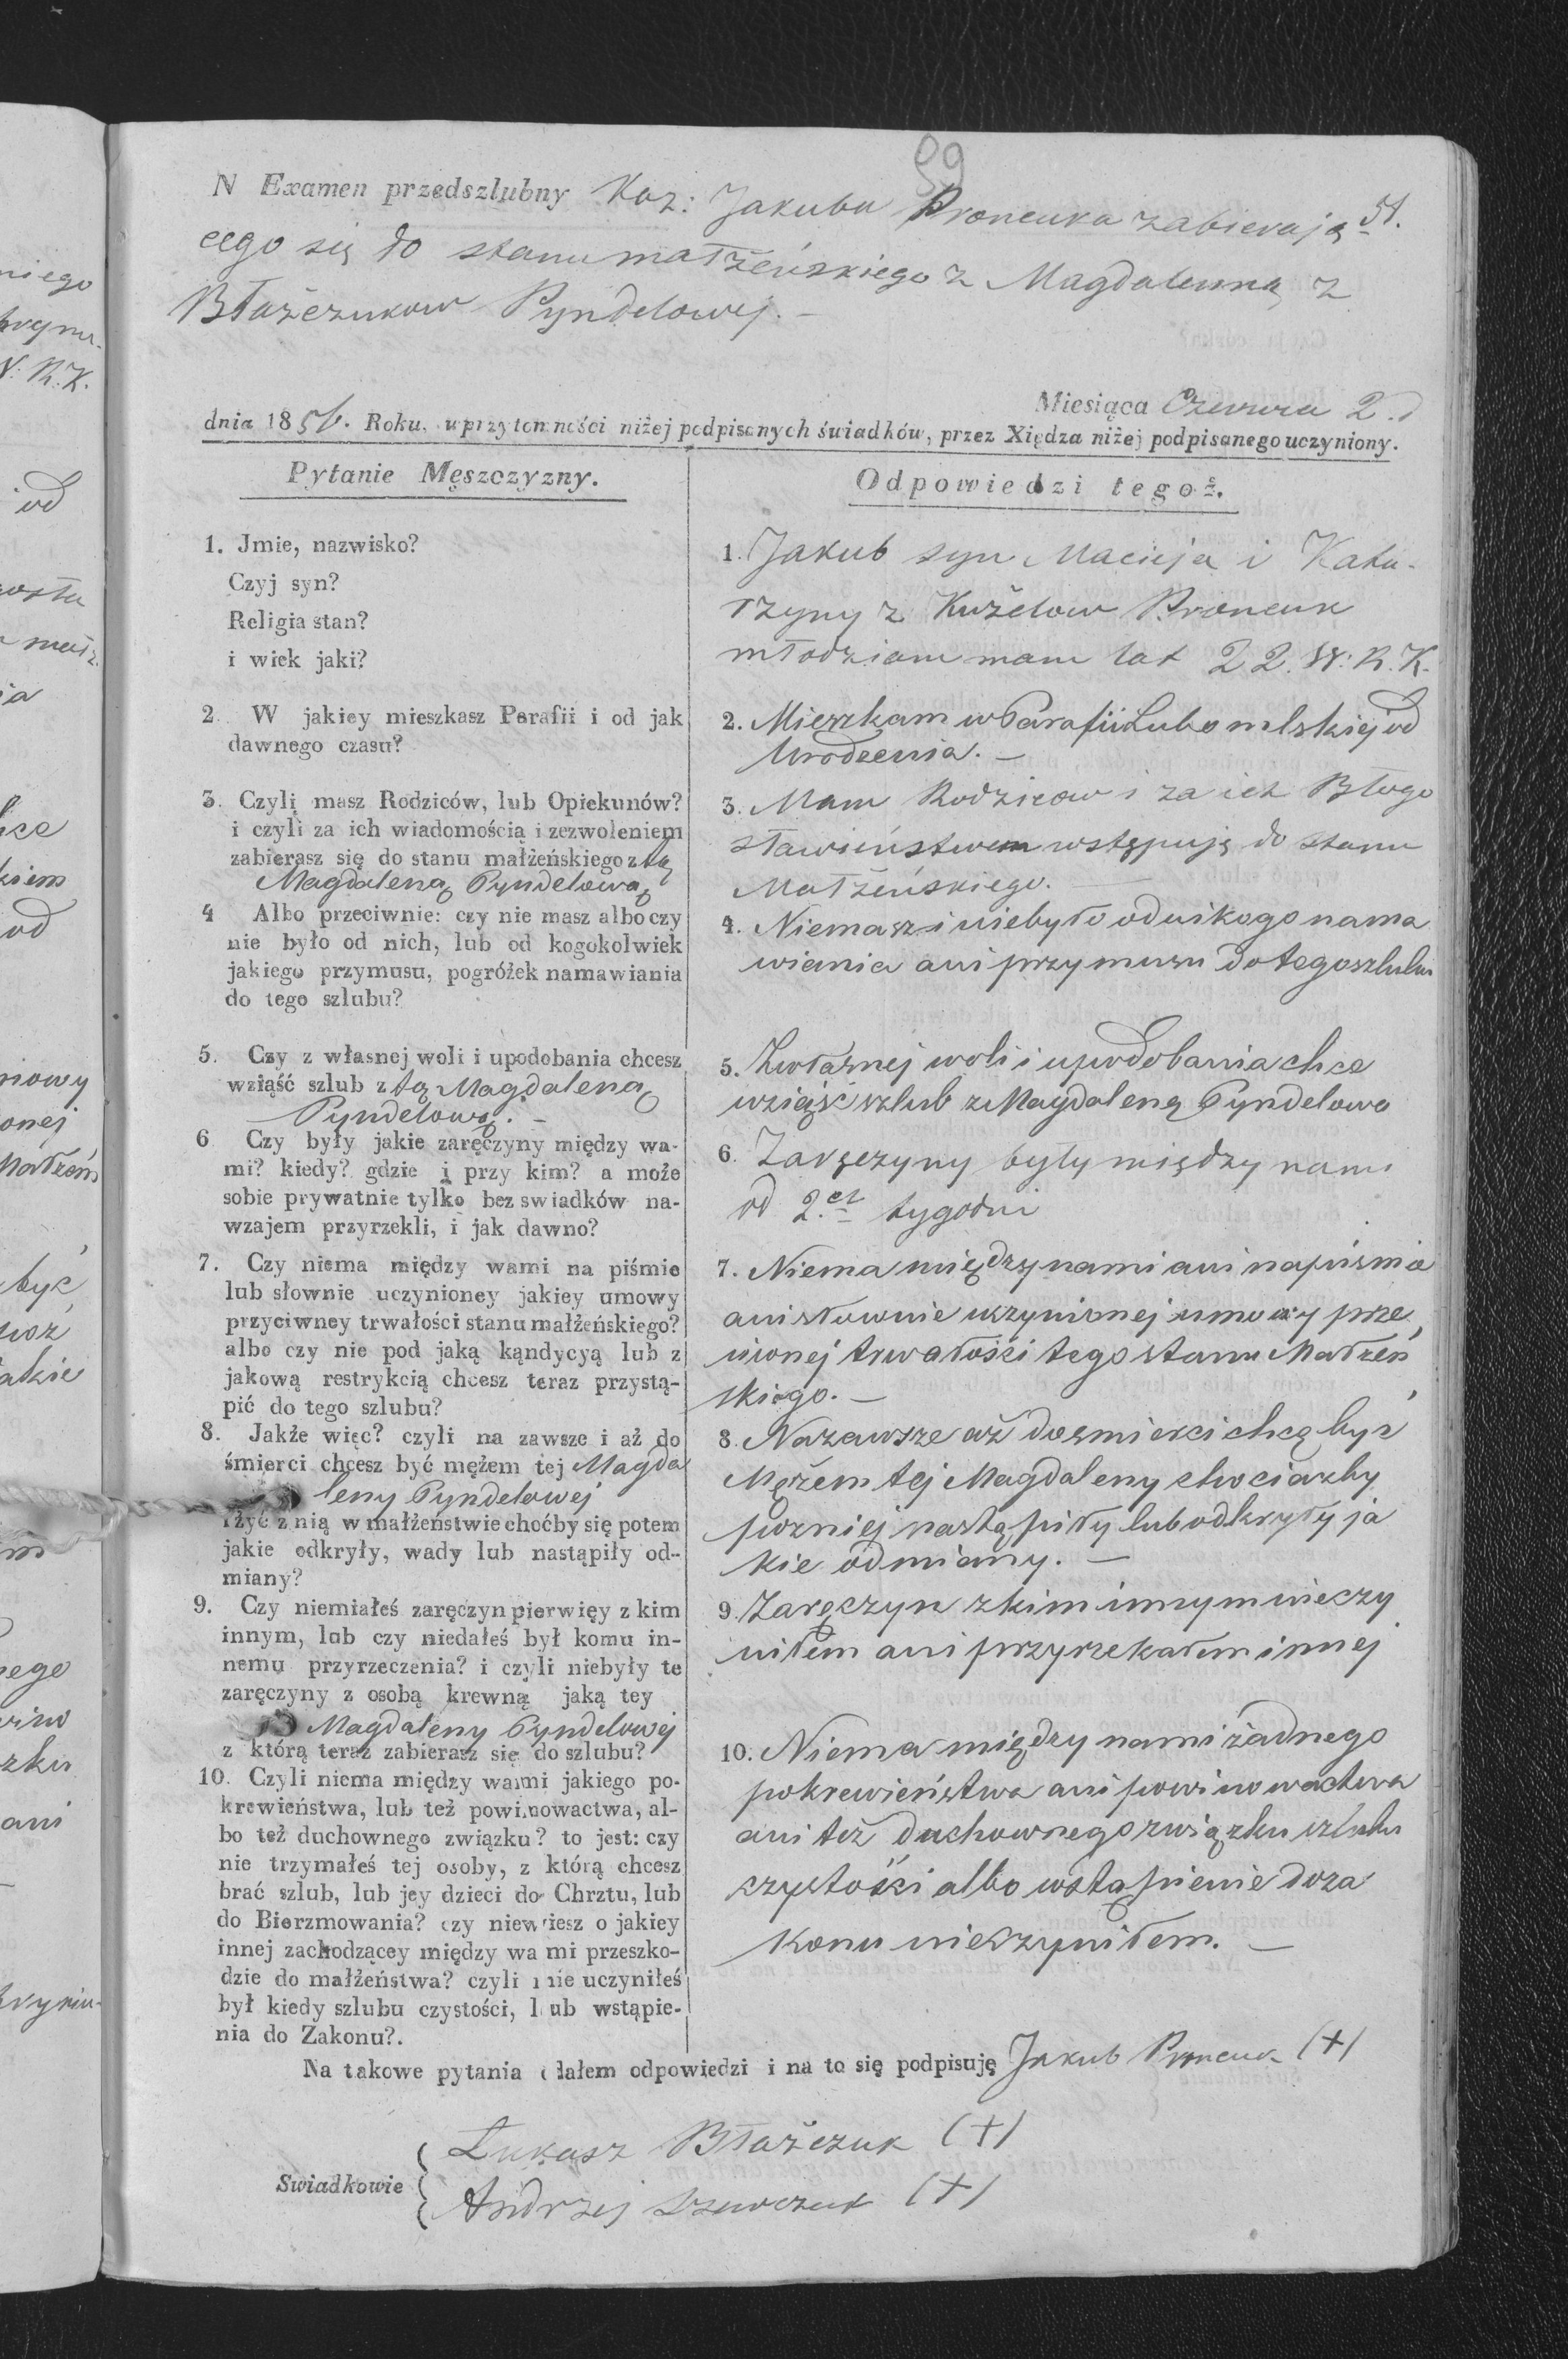 59
51.
N Examen przedszlubny Kaz: Jakuba Proneuka zabierają
cego się do stanu małżeńskiego z Magdalenną z
Błażczukow Pyndelowej. –
Miesiąca Czerwca 2. d
dnia 1856. Roku, w przytomności niżej podpisanych świadków, przez Xiędza niżej podpisanego uczyniony.
Pytanie Męszczyzny.
1. Jmie, nazwisko?
Czyj syn?
Religia stan?
i wiek jaki?
2. W jakiey mieszkasz Parafii i od jak
dawnego czasu?
3. Czyli masz Rodziców, lub Opiekunów?
i czyli za ich wiadomością i zezwoleniem
zabierasz się do stanu małżeńskiego z tą
Magdaleną Pyndelową
4 Albo przeciwnie: czy nie masz albo czy
nie było od nich, lub od kogokolwiek
jakiego przymusu, pogróżek namawiania
do tego szlubu?
5. Czy z własnej woli i upodobania chcesz
wziąść szlub z tą Magdaleną
Pyndelową. –
6 Czy były jakie zaręczyny między wa-
mi? kiedy? gdzie i przy kim? a może
sobie prywatnie tylko bez swiadków na-
wzajem przyrzekli, i jak dawno?
7. Czy niema między wami na piśmie
lub słownie uczynioney jakiey umowy
przyciwney trwałości stanu małżeńskiego?
albo czy nie pod jaką kąndycyą lub z
jakową restrykcią chcesz teraz przystą-
pić do tego szlubu?
8. Jakże więc? czyli na zawsze i aż do
śmierci chcesz być mężem tej Magda
leny Pyndelowej
i żyć z nią w małżeństwie choćby się potem
jakie odkryły, wady lub nastąpiły od-
miany?
9. Czy niemiałeś zaręczyn pierwięy z kim
innym, lub czy niedałeś był komu in-
nemu przyrzeczenia? i czyli niebyły te
zaręczyny z osobą krewną jaką tey
Magdaleny Pyndelowej
z którą teraz zabierasz się do szlubu?
10. Czyli niema między wami jakiego po-
krewieństwa, lub też powinowactwa, al-
bo też duchownego związku? to jest: czy
nie trzymałeś tej osoby, z którą chcesz
brać szlub, lub jey dzieci do Chrztu, lub
do Bierzmowania? czy niewiesz o jakiey
innej zachodzącey między wami przeszko-
dzie do małżeństwa? czyli nie uczyniłeś
był kiedy szlubu czystości, lub wstąpie-
nia do Zakonu?.
Odpowiedzi tegoż.
1. Jakub syn Macieja i Kata-
rzyny z Kuželow Proneuk
młodzian mam lat 22. W: R. K.
2. Mieszkam w Parafii Lubomlskiej od
Urodzenia. –
3. Mam Rodzicow i za ich Błogo
sławieństwem wstępuję do stanu
Małżeńskiego. –
4. Niemasz i niebyło od nikogo nama
wiania ani przymusu do tego szlubu
5. Z własnej woli i upodobania chce
wziąść szlub z Magdaleną Pyndelowo
6. Zaręczyny były między nami
od 2.ch tygodni
7. Niema między nami ani na piśmie
ani słownie uczynionej umowy prze
ciwnej trwałości tego stanu Małżeń
skiego. –
8. Na zawsze aż do śmierci chcę być
Mężem tej Magdaleny chociażby
pozniej nastąpiły lub odkryły ja
kie odmiany. –
9. Zaręczyn z kim innym nieczy
niłem ani przyrzekałem innej
10. Niema między nami żadnego
pokrewieństwa ani powinowactwa
ani też duchownego związku szlubu
czystości albo wstąpienie do za
konu nieczyniłem. –
Na takowe pytania dałem odpowiedzi i na to się podpisuję Jakub Proneuk (+)
Swiadkowie
Łukasz Błażczuk (+)
Andrzej Szewczuk (+)